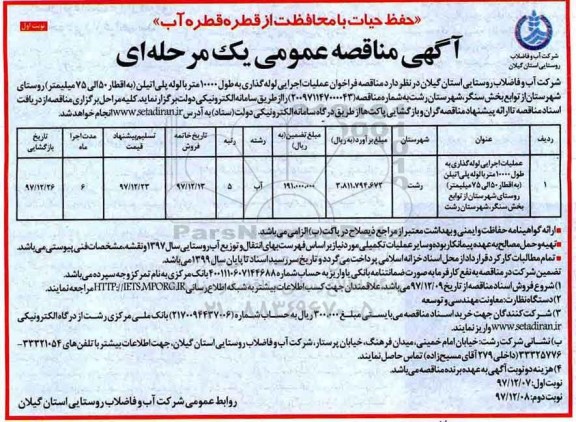 «حفظ حیات با محافظت از قطره قطره آب»
نوبت اول
آگهی مناقصه عمومی یک مرحله‌ای
شرکت آب و فاضلاب
روستایی استان گیلان
شرکت آب و فاضلاب روستایی استان گیلان در نظر دارد مناقصه فراخوان عملیات اجرایی لوله گذاری به طول ۱۰۰۰۰ متر با لوله پلی اتیلن (به اقطار ۵۰ الی ۷۵ میلیمتر) روستای
شهرستان از توابع بخش سنگر، شهرستان رشت به شماره مناقصه (۲۰۰۹۷۱۱۴۷۰۰۰۰۴۳) را از طریق سامانه الکترونیکی دولت برگزار نماید. کلیه مراحل برگزاری مناقصه از دریافت
اسناد مناقصه تا ارائه پیشنهاد مناقصه گران و بازگشایی پاکت ها از طریق درگاه سامانه الکترونیکی دولت (ستاد) به آدرس www.setadiran.ir انجام خواهد شد.
ردیف | عنوان | شهرستان | مبلغ برآورد (به ریال) | مبلغ تضمین (به ریال) | رشته | رتبه | تاریخ خاتمه فروش | تسلیم پیشنهاد قیمت | مدت اجرا ماه | تاریخ بازگشایی
۱ | عملیات اجرایی لوله گذاری به طول ۱۰۰۰۰ متر با لوله پلی اتیلن (به اقطار ۵۰ الی ۷۵ میلیمتر) روستای شهرستان از توابع بخش سنگر، شهرستان رشت | رشت | ۳،۸۱۱،۷۹۴،۶۷۳ | ۱۹۱،۰۰۰،۰۰۰ | آب | ۵ | ۹۷/۱۲/۱۳ | ۹۷/۱۲/۲۳ | ۶ | ۹۷/۱۲/۲۶
ارائه گواهینامه حفاظت و ایمنی و بهداشت معتبر از مراجع ذیصلاح در پاکت (ب) الزامی می باشد.
تهیه و حمل مصالح به عهده پیمانکار بوده و سایر عملیات تکمیلی مورد نیاز بر اساس فهرست بهای انتقال و توزیع آب روستایی سال ۱۳۹۷ و نقشه، مشخصات فنی پیوستی می باشد.
تمام مطالبات کارکرد قرارداد از محل اسناد خزانه اسلامی پرداخت می گردد و تاریخ سررسید اسناد تا پایان سال ۱۳۹۹ می باشد.
تضمین شرکت در مناقصه به نفع کارفرما به صورت ضمانتنامه بانکی یا واریز به حساب شماره ۴۰۰۱۱۱۰۶۰۷۱۴۴۶۸۸ بانک مرکزی به نام تمرکز وجوه سپرده می باشد.
۱) شروع فروش اسناد مناقصه از تاریخ ۹۷/۱۲/۰۹ می باشد. علاقمندان جهت کسب اطلاعات بیشتر به شبکه اطلاع رسانی HTTP://IETS.MPORG.IR مراجعه نمایند.
۲) دستگاه نظارت: معاونت مهندسی و توسعه
۳) شرکت کنندگان جهت خرید اسناد مناقصه می بایستی مبلغ ۳۰۰،۰۰۰ ریال به حساب شماره (۲۱۷۰۰۹۴۴۳۷۰۰۶) بانک ملی مرکزی رشت از درگاه الکترونیکی
www.setadiran.ir واریز نمایند.
ب) نشانی شرکت رشت: خیابان امام خمینی، میدان فرهنگ، خیابان پرستار، شرکت آب و فاضلاب روستایی استان گیلان، جهت اطلاعات بیشتر با تلفن های ۳۳۳۲۱۰۵۴-
۳۳۳۲۵۷۷۶ (داخلی ۲۷۹ آقای مسیح زاده) تماس حاصل نمایند.
۴) هزینه دو نوبت آگهی به عهده برنده مناقصه می باشد.
نوبت اول: ۹۷/۱۲/۰۷
نوبت دوم: ۹۷/۱۲/۰۸
روابط عمومی شرکت آب و فاضلاب روستایی استان گیلان